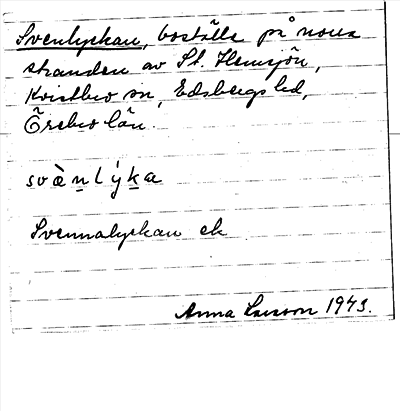 Svenlyckan, boställe på norra
stranden av St. Hemsjön,
Kvistbro sn, Edsbergs hd,
Örebro län.
svὰn̲lýk̲a
Svennalyckan ek
Anna Larsson 1943.